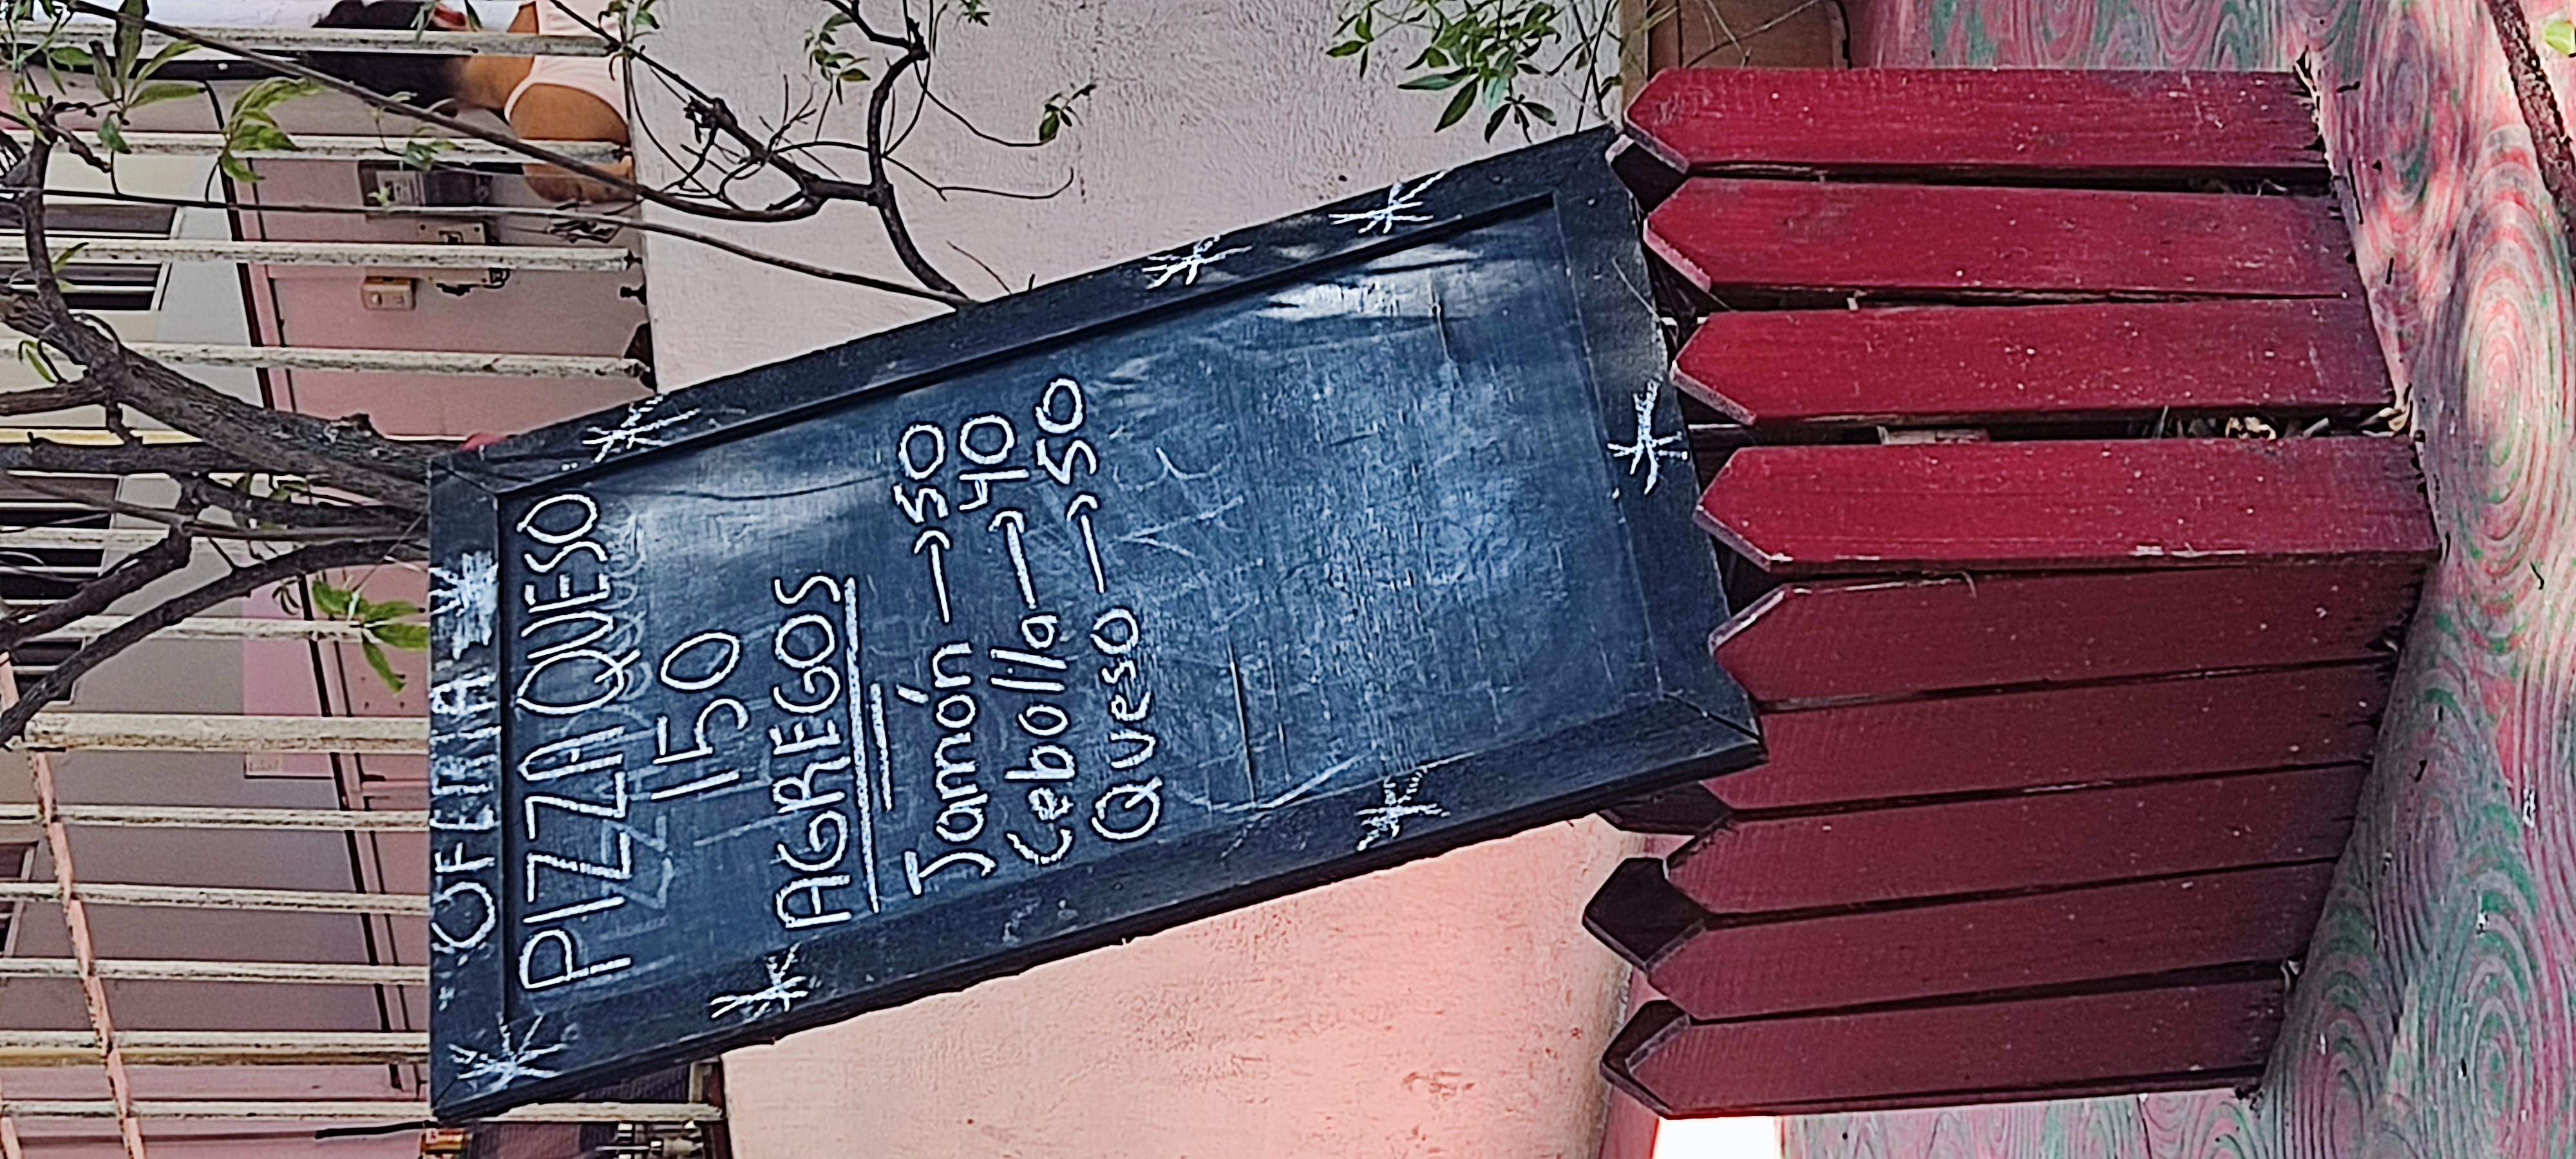 OFERTA
PIZZA QUESO
150
AGREGOS
Jamón → 50
Cebolla → 40
Queso → 50